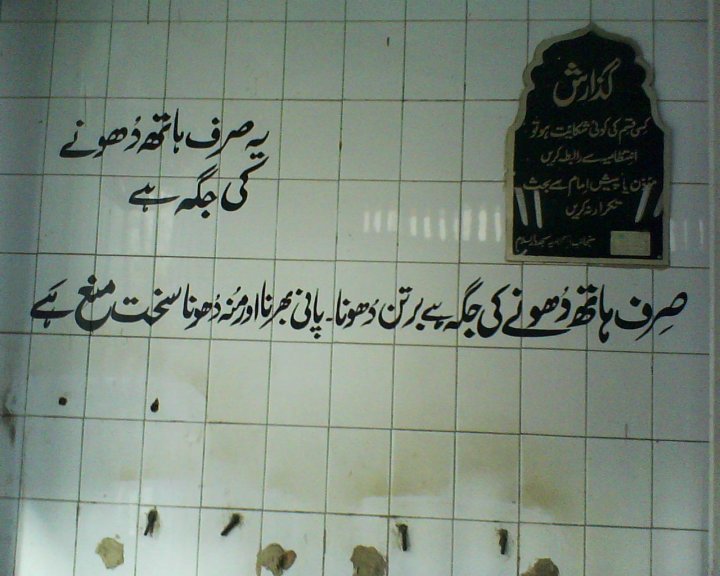 یہ صرف ہاتھ دُھونے
کی جگہ ہے
گذارش
کسی قسم کی کوئی شکایت ہو تو
انتظامیہ سے رابطہ کریں
مؤذن یا پیش امام سے بحث
تکرار نہ کریں
صِرف ہاتھ دُھونے کی جگہ ہے برتن دُھونا۔ پانی بھرنا اور مُنہ دُھونا سخت منع ہَے